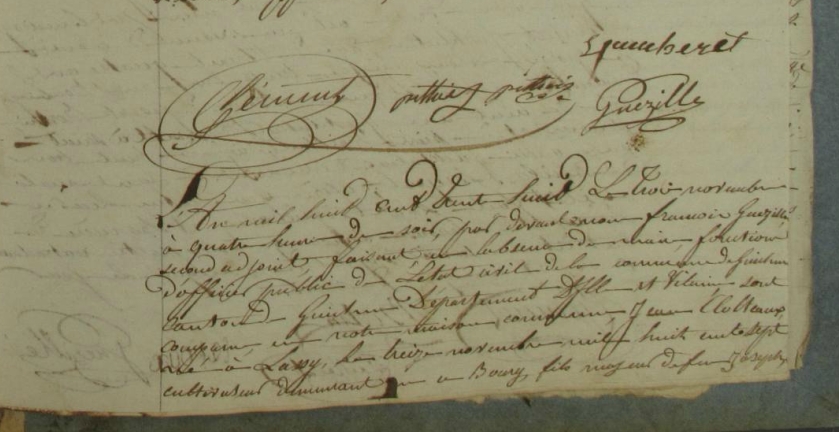 Gaucheret
Clément pethiey pethiois Guézille
L'An mil huit cent trent huit Le Trois novembre
à quatre heure du soir, par devant nou francois Guezille
second adjoint, faisant en labsence du maire, fonction
d'officier public de Letat civil de la commune de Guichen
canton de Guichen Departement D'Ille et Vilaine sont
comparu en notre maison commune Jean Clolteaux
né à Lassy, le treize novembre mil huit cent sept
cultivateur demeurant au Bourg, fils majeur de feu Joseph